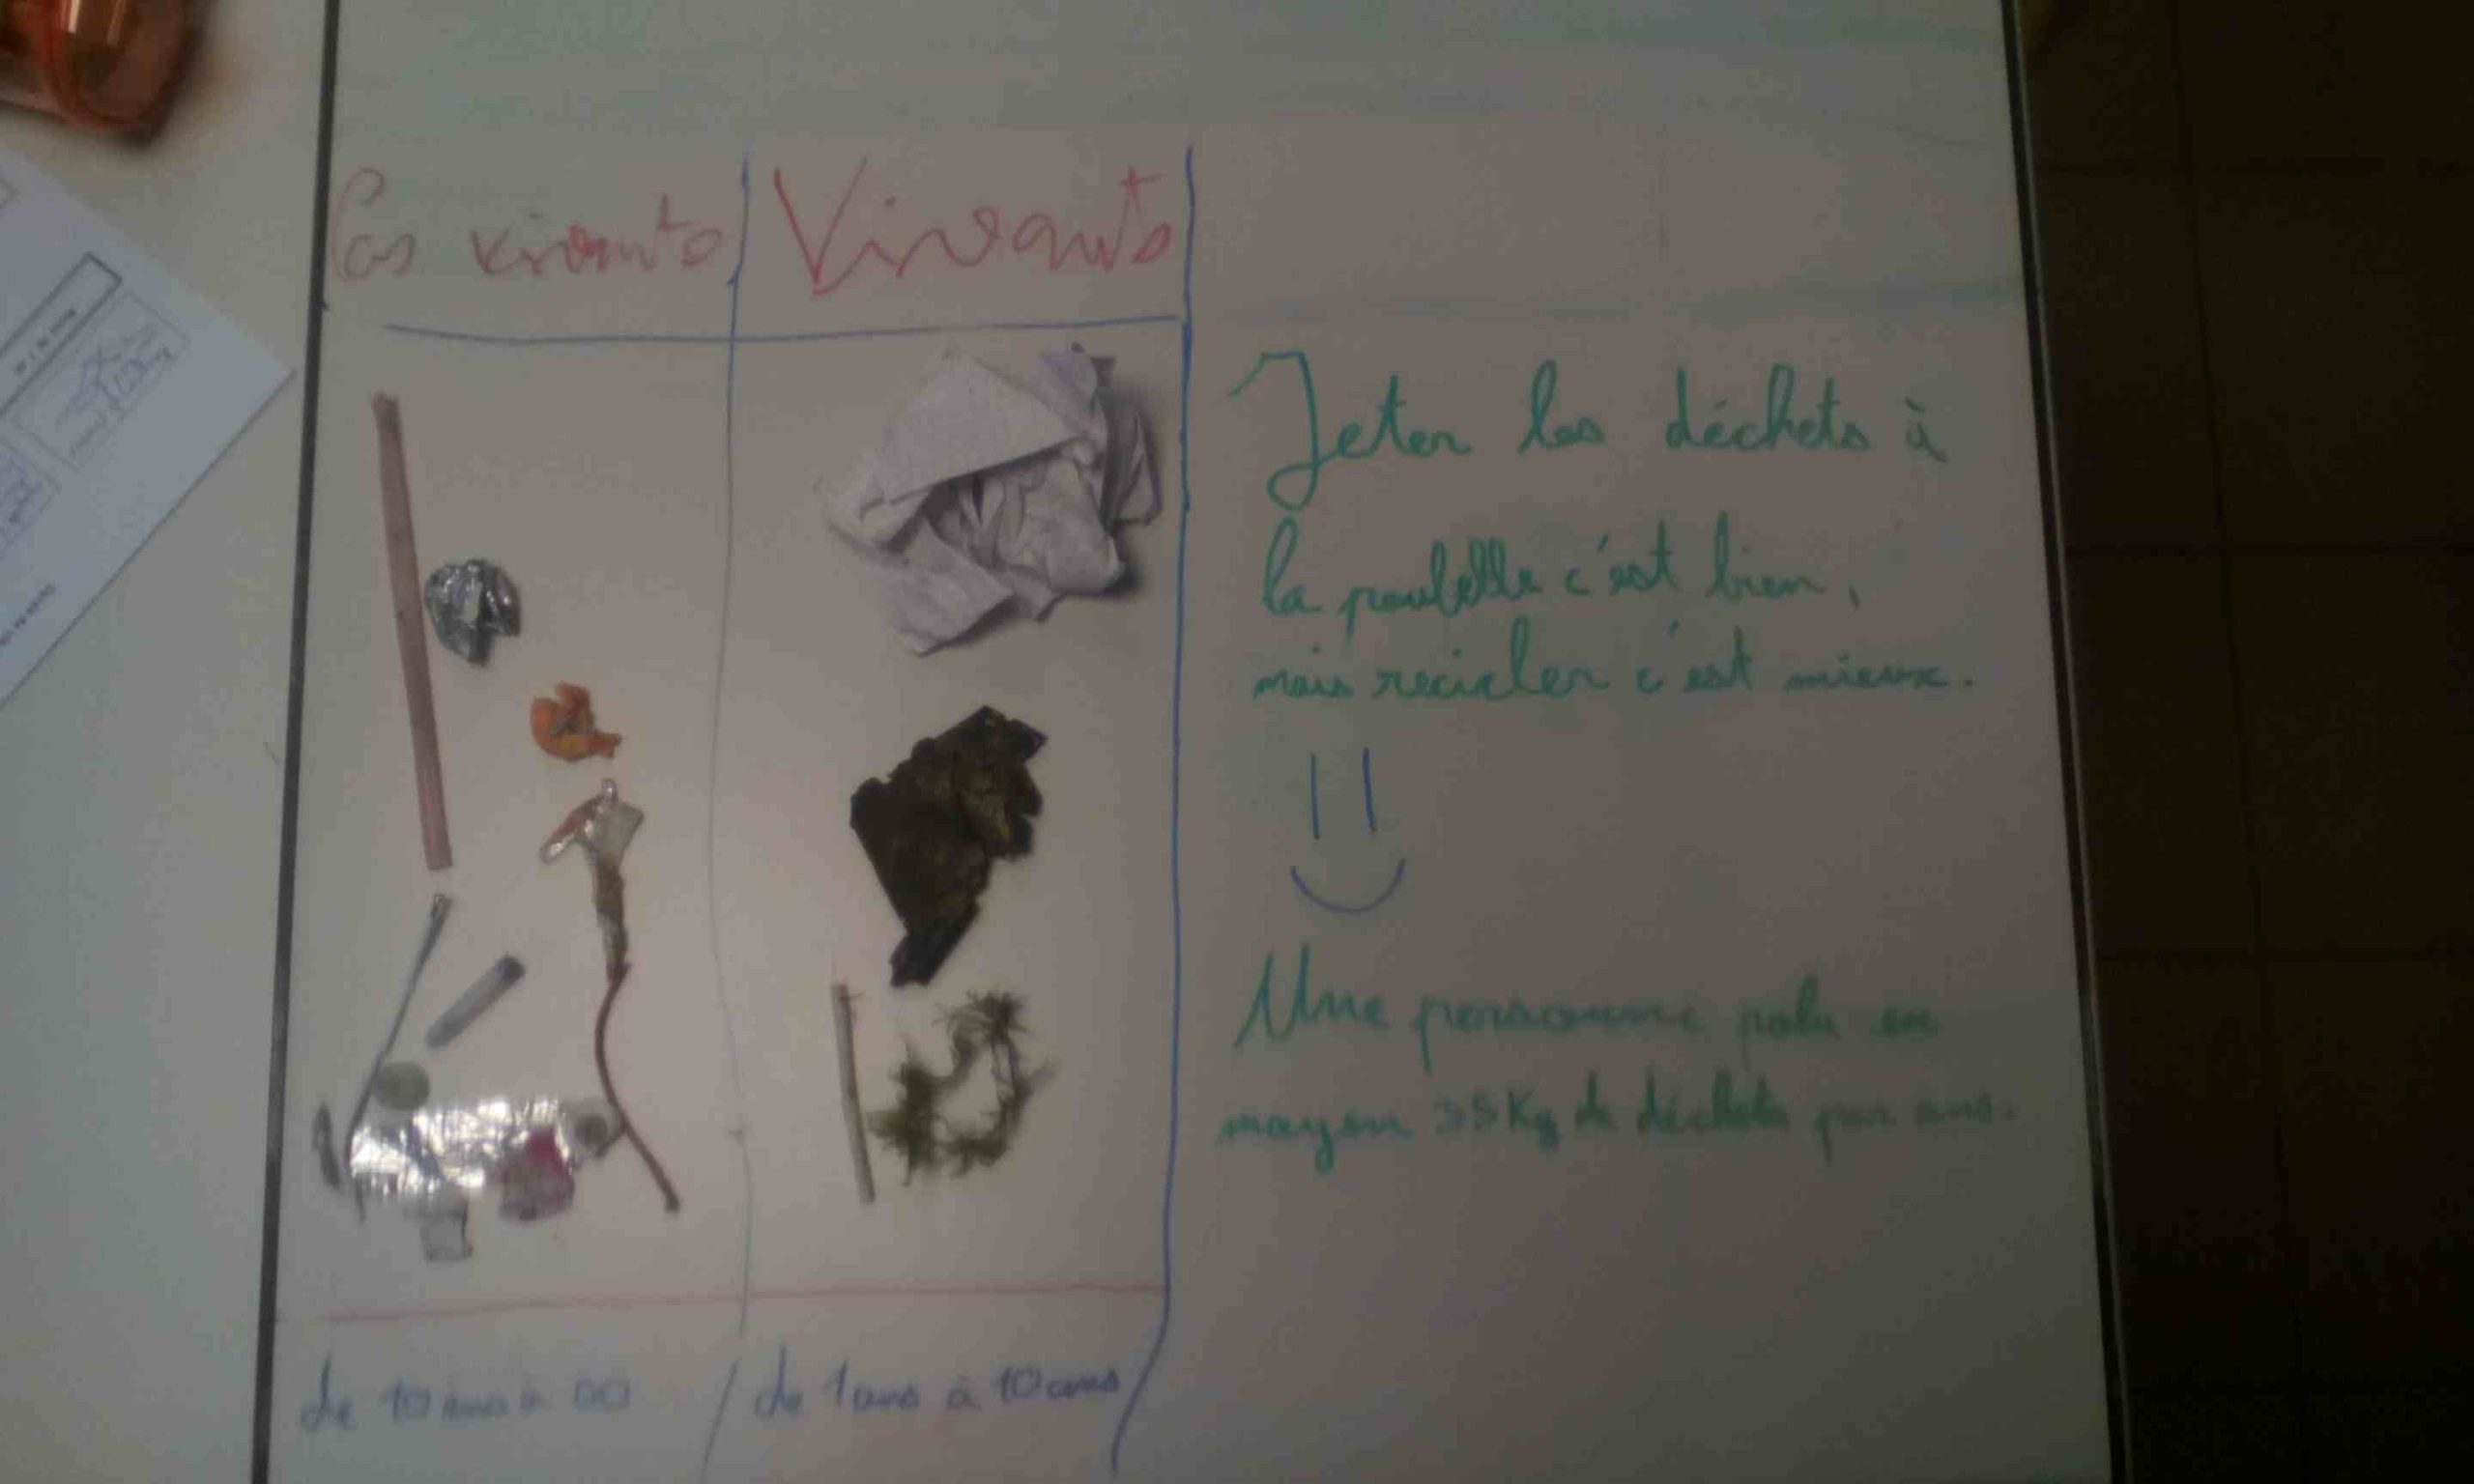 Pas vivants
Vivants
Jeter les déchets à
la poubelle c'est bien,
mais recicler c'est mieux.
Une personne polu en
moyen Kg de déchets par ans.
de 10 ans à ∞
de 1 ans à 10 ans